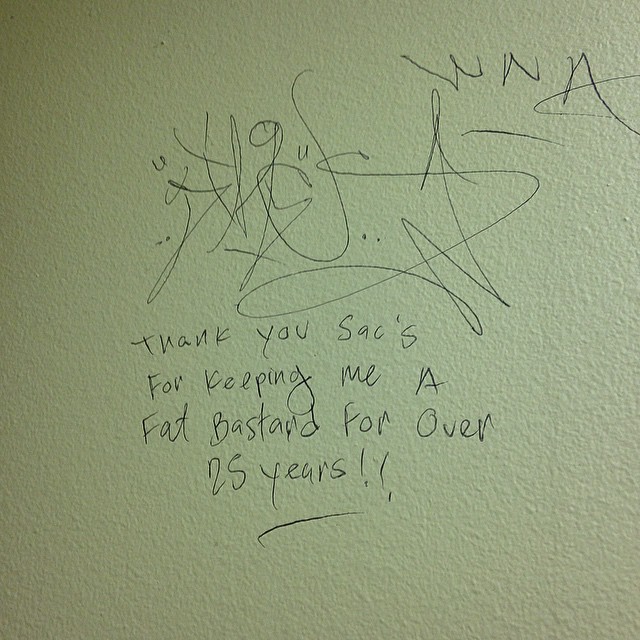 WNA
Thank you Sac's
For Keeping me A
Fat Bastard For Over
25 years!!